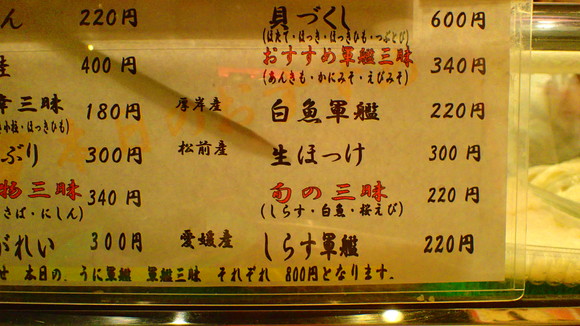 ん 220円
貝づくし 600円
(ほたて・ほっき・ほっきひも・つぶとび)
400円
おすすめ軍艦三昧 340円
(あんきも・かにみそ・えびみそ)
三昧 180円
小柱・ほっきひも)
厚岸産 白魚軍艦 220円
ぶり 300円
松前産 生ほっけ 300円
物三昧 340円
さば・にしん)
旬の三昧 220円
(しらす・白魚・桜えび)
がれい 300円
愛媛産 しらす軍艦 220円
せ 本日の、うに軍艦 軍艦三昧 それぞれ 800円となります。